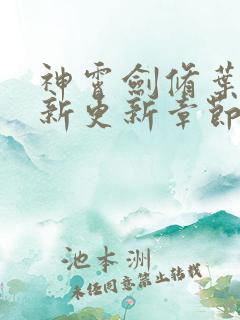 神霄劍脩葉
新更新章節
池本洲
未任同意禁止转载